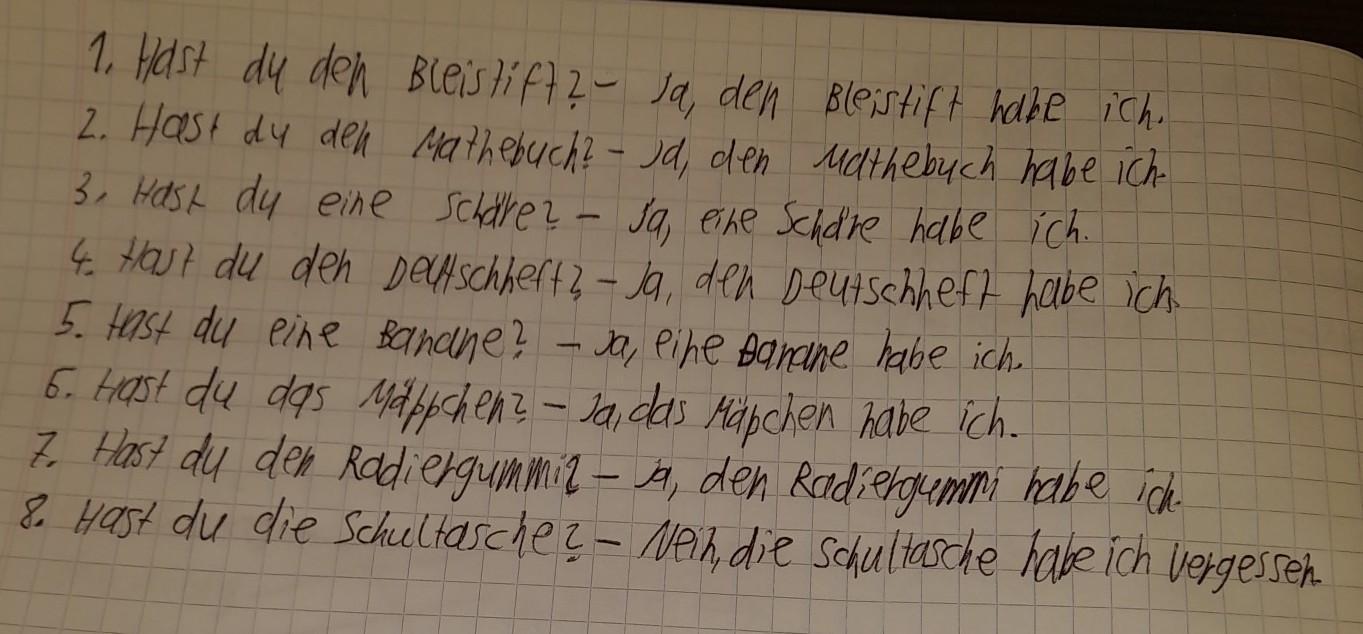 1. Hast du den Bleistift? - Ja, den Bleistift habe ich.
2. Hast du den Mathebuch? - Ja, den Mathebuch habe ich.
3. Hast du eine Schäre? - Ja, eine Schäre habe ich.
4. Hast du den Deutschheft? - Ja, den Deutschheft habe ich.
5. Hast du eine Banane? - Ja, eine Banane habe ich.
6. Hast du das Mäppchen? - Ja, das Mäpchen habe ich.
7. Hast du den Radiergummi? - Ja, den Radiergummi habe ich.
8. Hast du die Schultasche? - Nein, die Schultasche habe ich vergessen